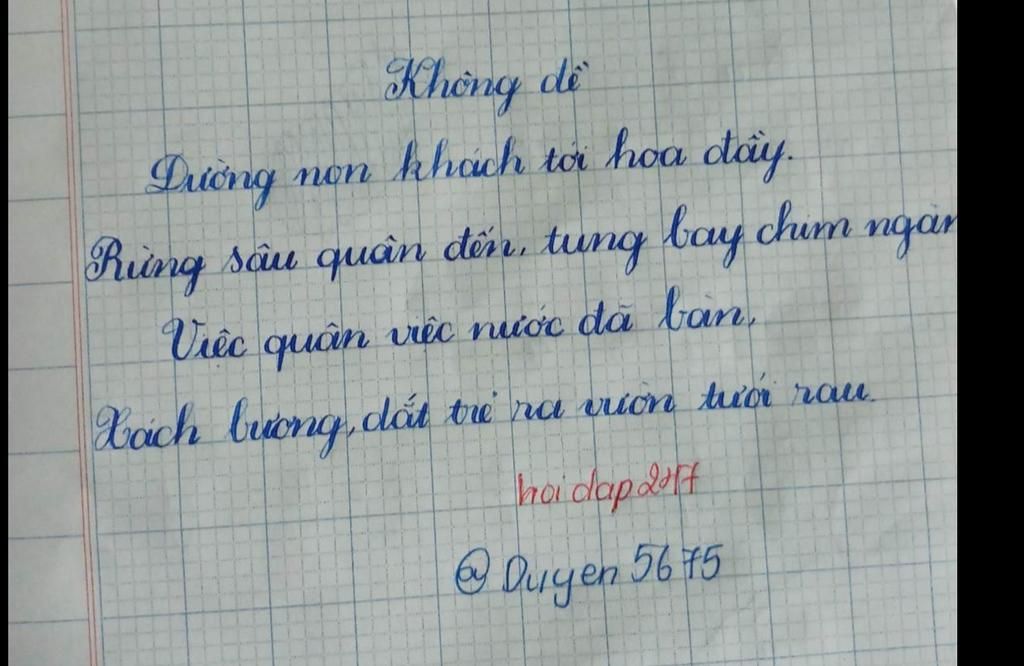 Không dề
Đường non khách tới hoa đầy.
Rừng sâu quân đến, tung bay chim ngàn
Việc quân việc nước đã bàn,
Xách bương, dắt trẻ ra vườn tưới rau.
hoidap247
@Duyen5675